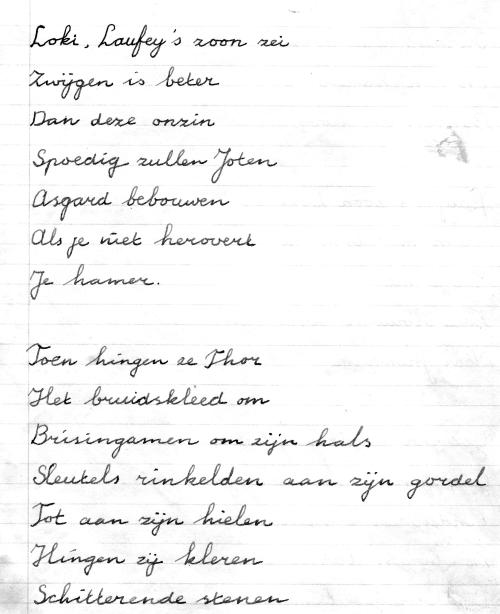 Loki, Laufey's zoon zei
Zwijgen is beter
Dan deze onzin
Spoedig zullen Joten
Asgard bebouwen
Als je niet herovert
Je hamer.
Toen hingen ze Thor
Het bruidskleed om
Brisingamen om zijn hals
Sleutels rinkelden aan zijn gordel
Tot aan zijn hielen
Hingen zij kleren
Schitterende stenen